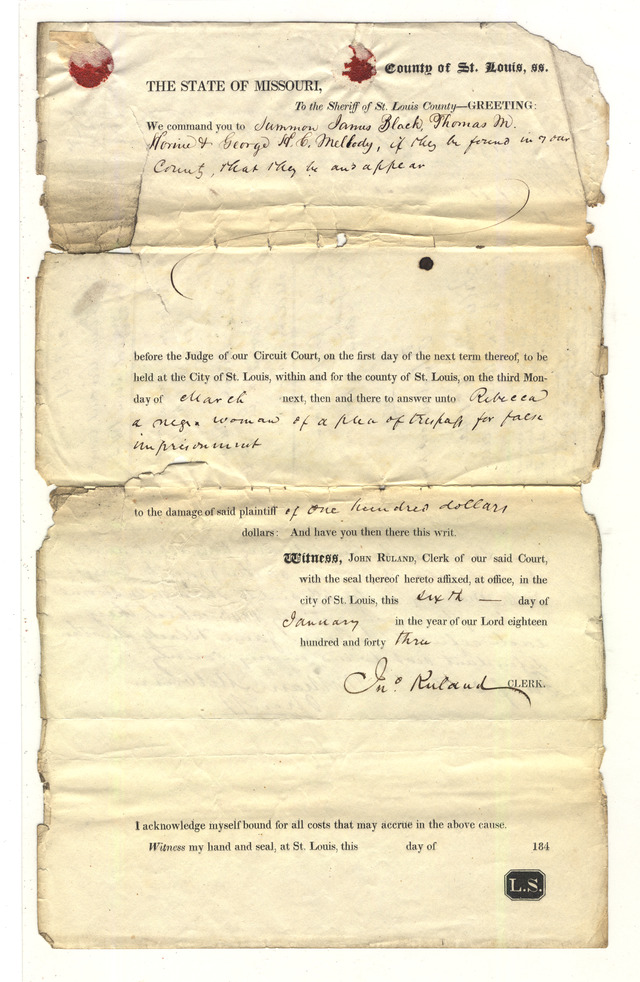 County of St. Louis, ss.
THE STATE OF MISSOURI,
To the Sheriff of St. Louis County—GREETING:
We command you to Summon James Black, Thomas M.
Horine & George H. C. Melody, if they be found in your
County, that they be and appear
before the Judge of our Circuit Court, on the first day of the next term thereof, to be
held at the City of St. Louis, within and for the county of St. Louis, on the third Mon-
day of March next, then and there to answer unto Rebecca
a negro woman of a plea of trespass for false
imprisonment
to the damage of said plaintiff of one hundred dollars
dollars: And have you then there this writ.
Witness, JOHN RULAND, Clerk of our said Court,
with the seal thereof hereto affixed, at office, in the
city of St. Louis, this sixth — day of
January in the year of our Lord eighteen
hundred and forty three
Jno. Ruland CLERK.
I acknowledge myself bound for all costs that may accrue in the above cause.
Witness my hand and seal, at St. Louis, this day of 184
L.S.